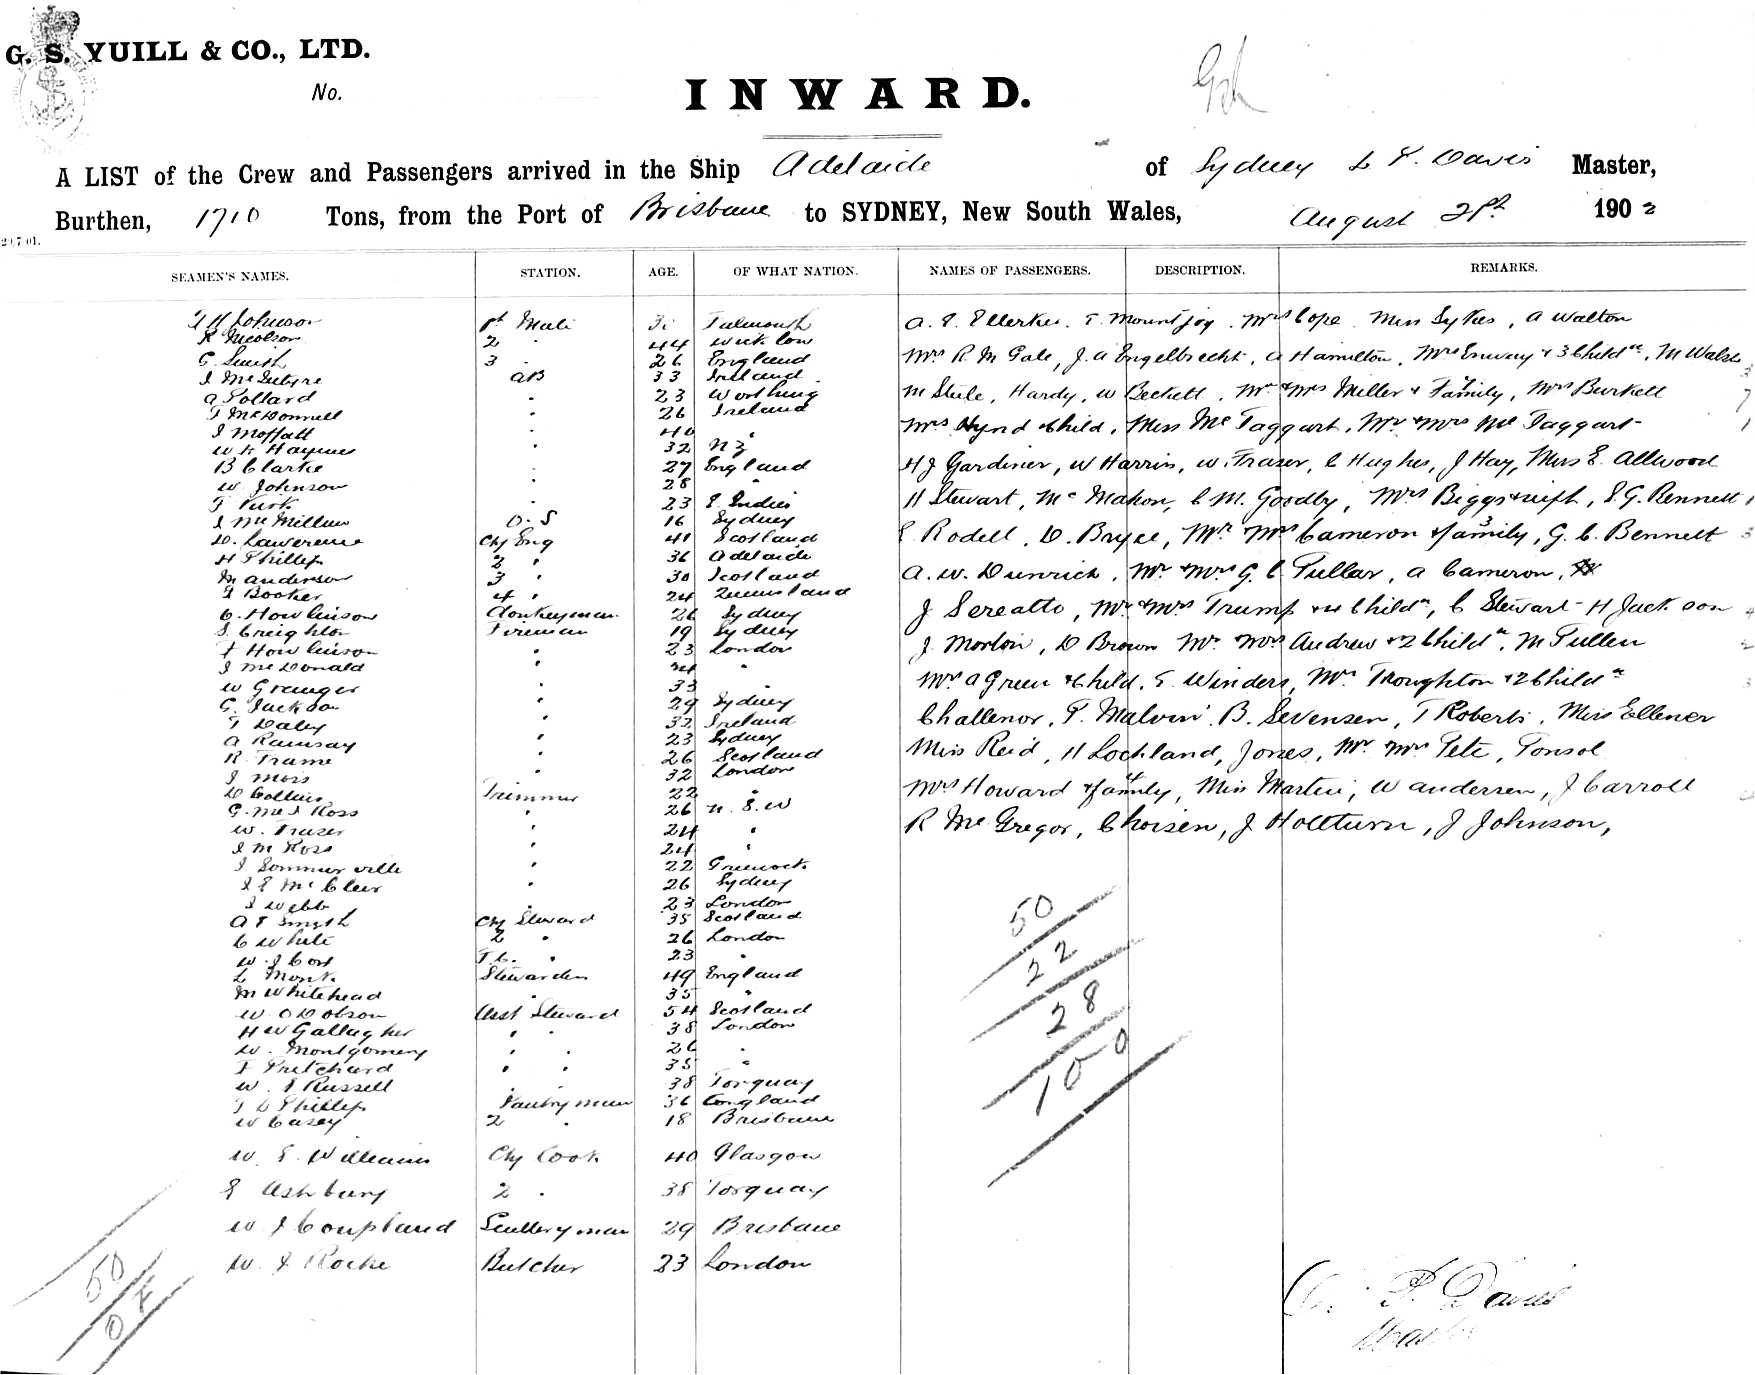 G. S. YUILL & CO., LTD.
No.
INWARD.
A LIST of the Crew and Passengers arrived in the Ship Adelaide of Sydney L. P. Davis Master,
Burthen, 1710 Tons, from the Port of Brisbane to SYDNEY, New South Wales, August 21st 1902
20.7.01.
SEAMEN'S NAMES. STATION. AGE. OF WHAT NATION. NAMES OF PASSENGERS. DESCRIPTION. REMARKS.
Johnson 1st Mate Falmouth
R Nicolson 2 " 44 Wicklow
G. Smith 3 " 26 England
J McIntyre AB 33 Ireland
A Pollard " 23 Worthing
J McDonnell " 26 Ireland
J Moffatt " 40 "
W. H Haynes " 32 N Z
B Clarke " 27 England
W. Johnson " 28 "
F Turk " 23 E. Indies
J McMillan O. S 16 Sydney
D. Lawrence Chf Eng 41 Scotland
H Phillips 2 " 36 Adelaide
M Anderson 3 " 30 Scotland
J Booker 4 " 24 Queensland
C. Howlinson Donkeyman 26 Sydney
S. Creighton Fireman 19 Sydney
F Howlinson " 23 London
J McDonald " 34 "
W Grainger " 33 "
G. Jackson " 29 Sydney
T Daley " 32 Ireland
A Ramsay " 23 Sydney
R. Frame " 26 Scotland
J Mois " 32 London
D Collins Trimmer 22 "
G. McJ Ross " 26 N. S. W
W. Fraser " 24 "
J M Ross " 24 "
J Sommerville " 22 Greenock
J E McCleer " 26 Sydney
J Webb " 23 London
A T Smyth Chf Steward 35 Scotland
C White 2 " 26 London
W. J Cox F.C. " 23 "
L Monk Stewardess 49 England
M Whitehead " 35 "
W. O Dobson Asst Steward 54 Scotland
H W Gallagher " " 38 London
W. Montgomery " " 26 "
F Pritchard " " 35 "
W. J Russell " " 38 Torquay
T D Phillips Pantryman 36 England
W Casey 2 " 18 Brisbane
W. E. Williams Chf Cook 40 Glasgow
E Ashbury 2 " 38 Torquay
W J Coupland Scullery man 29 Brisbane
W. J Roche Butcher 23 London
A. E. Ellerker. T. Mountjoy. Mrs Cope. Miss Sykes, A Walton
Mrs R M Gale, J. A Engelbrecht, A Hamilton, Mrs Enway & 3 Childn, M Walsh 3
M Steele, Hardy, W Beckett. Mr & Mrs Miller & Family, Mrs Burkell 7
Mrs Hynd & Child, Miss McTaggart, Mr & Mrs McTaggart 1
H J Gardiner, W Harris, W. Fraser, C Hughes, J Hay, Miss E. Allwood
H Stewart, McMahon, C M. Goodby, Mrs Biggs & inft, S. G. Rennell 1
E Rodell, D. Bryce, Mr & Mrs Cameron & family, G. C. Bennett 3
A. W. Dunrich, Mr & Mrs G. C Pullar, A Cameron,
J Sereatto, Mr & Mrs Trump & 4 Childn, C Stewart H Jackson 4
J. Morton, D Brown Mr & Mrs Andrew & 2 Childn, M Pullen 2
Mrs A Green & Child. T. Winders, Mrs Troughton & 2 Childn 3
Challenor, P. Malvin B. Sevensen, T Roberts, Miss Ellener
Miss Reid, H Lochland, Jones, Mr & Mrs Pete, Ponsol
Mrs Howard & family, Miss Martin, W Andersen, J Carroll
R McGregor, Choisen, J Hollturn, J Johnson,
50
22
28
100
50
L. P. Davis
Master